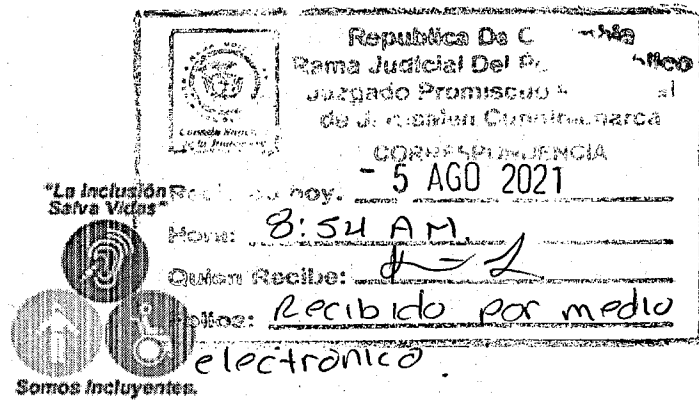 Republica De C
Rama Judicial Del P
Juzgado Promiscuo
de J Cundinamarca
CORRESPONDENCIA
hoy: - 5 AGO 2021
"La Inclusión
Salva Vidas"
Hora: 8:54 AM.
Quien Recibe:
Folios: Recibido por medio
electrónico.
Somos Incluyentes.